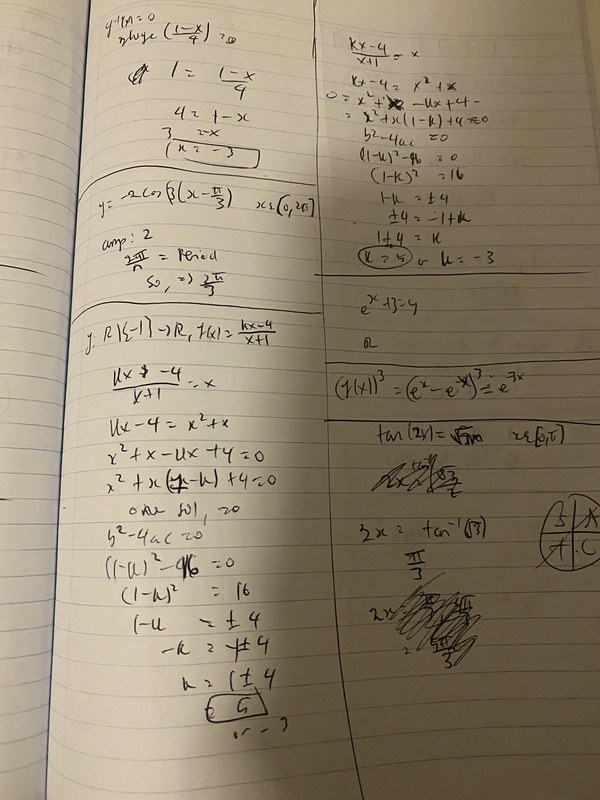 1 = (1-x)/4
4 = 1-x
3 = -x
x = -3
y = -2cos(3(x - π/3)) x ε [0, 2π]
amp: 2
2π/n = Period
so, => 2π/3
f: R\{-1} → R, f(x) = (kx-4)/(x+1)
(kx - 4)/(x+1) = x
kx - 4 = x² + x
x² + x - kx + 4 = 0
x² + x(1-k) + 4 = 0
one sol, = 0
b² - 4ac = 0
(1-k)² - 16 = 0
(1-k)² = 16
1-k = ± 4
k = 1 ± 4
5
or -3
(kx-4)/(x+1) = x
kx - 4 = x² + x
0 = x² + x - kx + 4
= x² + x(1-k) + 4 = 0
b² - 4ac = 0
(1-k)² - 16 = 0
(1-k)² = 16
1-k = ±4
±4 = -1+k
1±4 = k
k = 5 or k = -3
e^x + 3 = y
R
(f(x))³ = (e^x - e^-x)³ = e^3x
tan(2x) = √3 x ε [0, π]
2x = tan⁻¹(√3)
π/3
2x
S A
T C